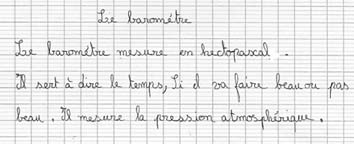 Le baromètre
Le baromètre mesure en hectopascal.
Il sert à dire le temps, si il va faire beau ou pas
beau. Il mesure la pression atmosphérique.